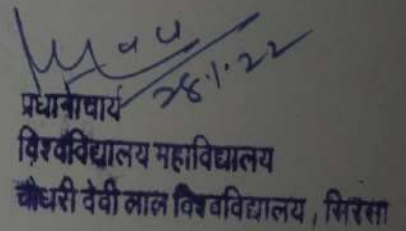 28.1.22
प्रधानाचार्य
विश्वविद्यालय महाविद्यालय
चौधरी देवी लाल विश्वविद्यालय, सिरसा